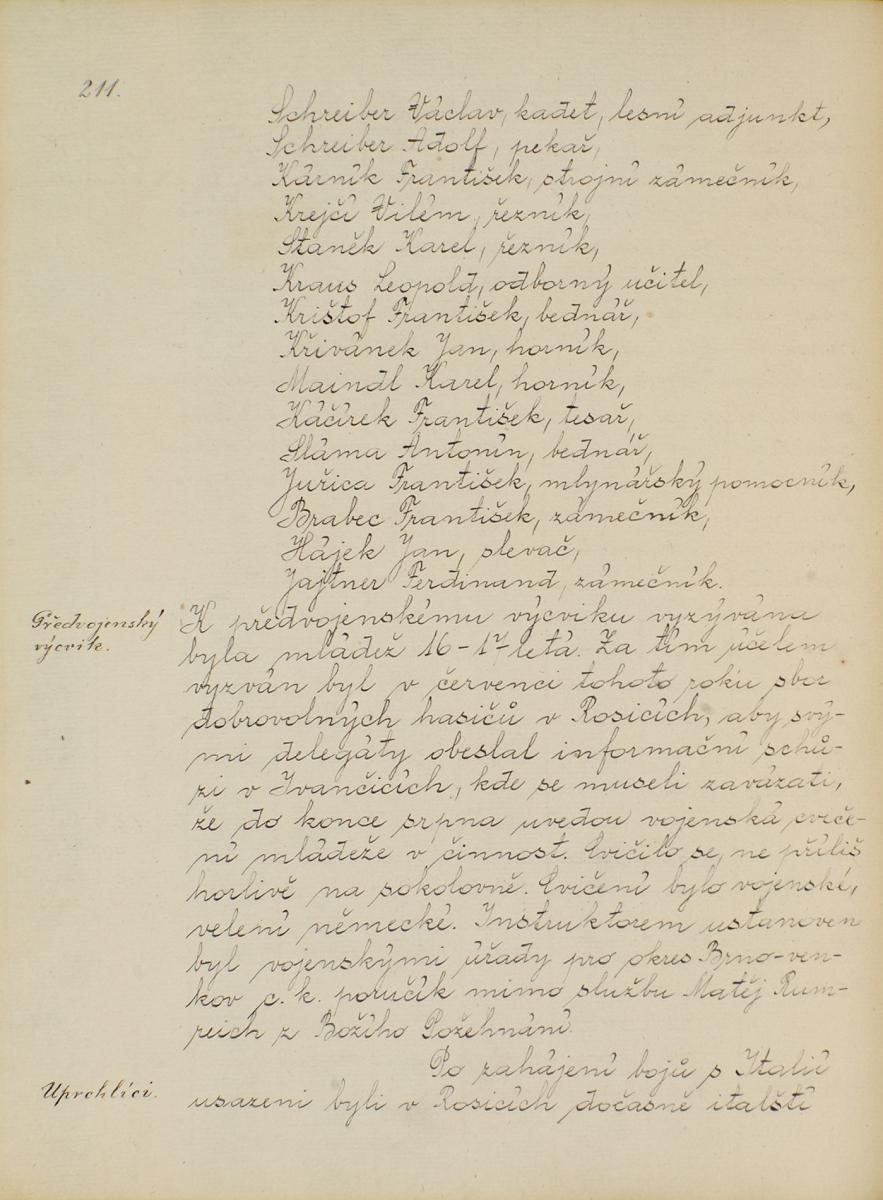 211.
Schreiber Václav, kadet, lesní adjunkt,
Schreiber Adolf, pekař,
Kárník František, strojní zámečník,
Krejčí Vilém, řezník,
Staněk Karel, řezník,
Kraus Leopold, odborný učitel,
Krištof František, bednář,
Křivánek Jan, horník,
Maindl Karel, horník,
Káčírek František, tesař,
Sláma Antonín, bednář,
Juřica František, mlynářský pomocník,
Brabec František, zámečník,
Hájek Jan, slevač,
Jajtner Ferdinand, zámečník.
Předvojenský
výcvik.
K předvojenskému výcviku vyzývána
byla mládež 16-17 letá. Za tím účelem
vyzván byl v červenci tohoto roku sbor
dobrovolných hasičů v Rosicích, aby svý-
mi delegáty obeslal informační schů-
zi v Ivančicích, kde se museli zavázati,
že do konce srpna uvedou vojenská cviče-
ní mládeže v činnost. Cvičilo se, ne příliš
horlivě na sokolovně. Cvičení bylo vojenské,
velení německé. Instruktorem ustanoven
byl vojenskými úřady pro okres Brno-ven-
kov c. k. poručík mimo službu Matěj Rum-
preich z Božího Požehnání.
Uprchlíci.
Po zahájení bojů s Italií
usazeni byli v Rosicích dočasně italští